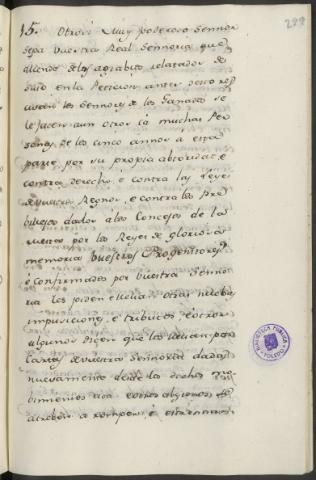 299
15. Otrosi Muy poderoso Sennor
sepa vuestra Real Sennoria que
allende de los agrabios relatados de
suso en la Peticion antes desto
los Sennores de los Ganados se
le facen aun otros a muchas Per
sonas de los cinco annos a esta
parte por su propia abtoridad, e
contra derecho, e contra las Leyes
de vuestros Regnos, e contra los Pre
bilejos dados a los Concejos de la
por los Reyes de gloriosa
memoria vuestros Progenitores,
e confirmados por vuestra Senno
ria les piden e llevan otras nuebas
imposiciones, e tributos, e otros
algunos dicen que las
Cartas de vuestra Sennoria dadas
nuevamente desde los dichos mo
bimientos acá e otros algunos se
atreben a romper, e
BIBLIOTECA PUBLICA
TOLEDO